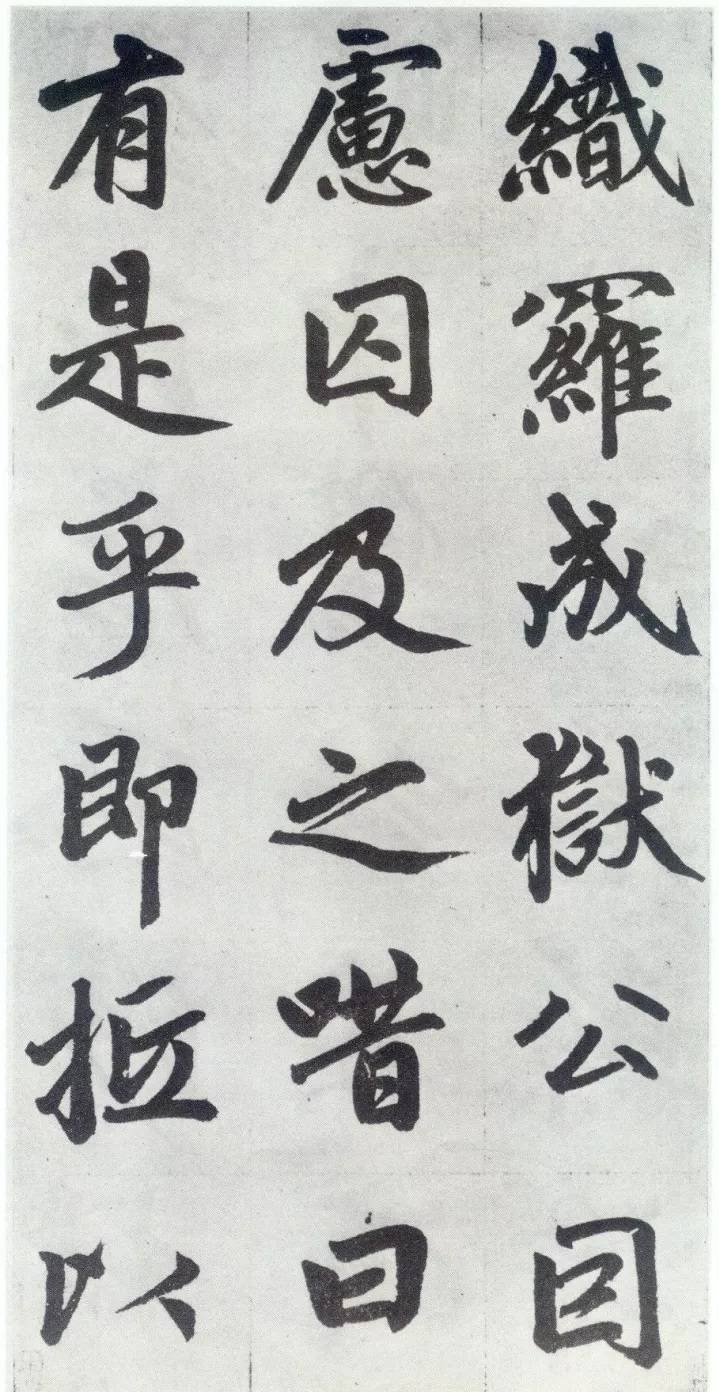 織羅成獄公囙
慮囚及之唶曰
有是乎即抵以